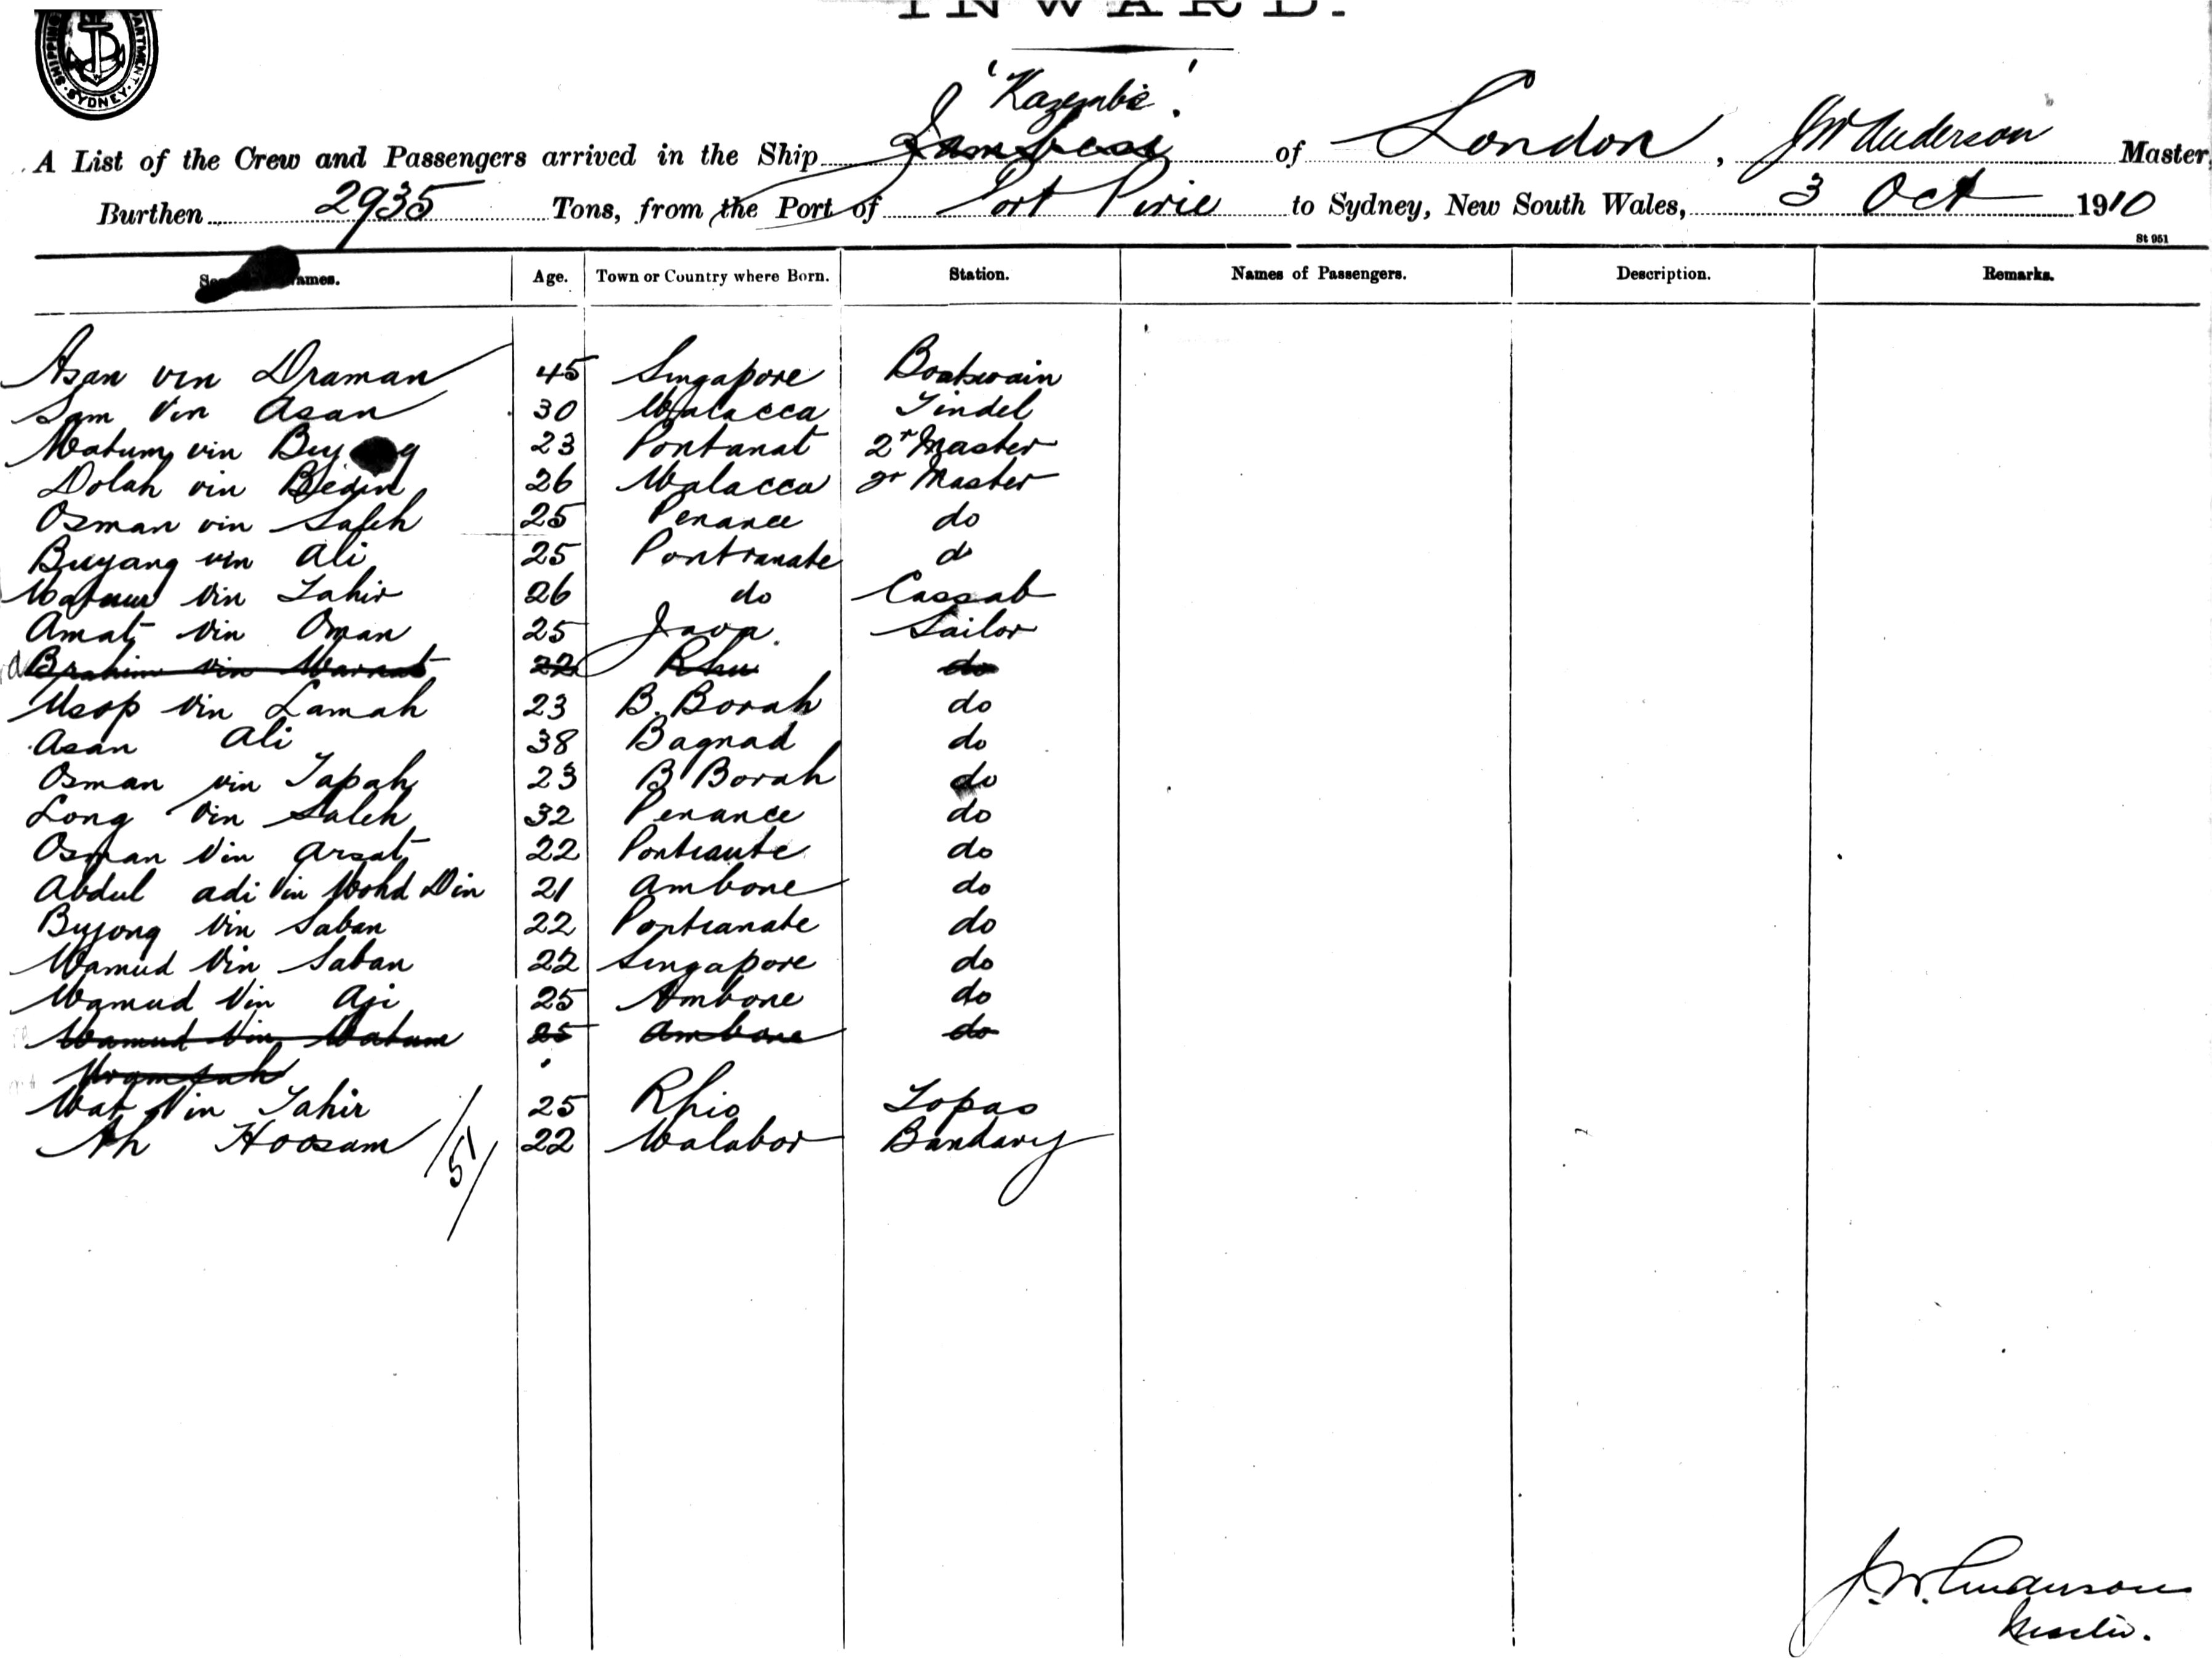 INWARD.
SYDNEY
'Kazembe'.
A List of the Crew and Passengers arrived in the Ship Zambesi of London, J W Anderson Master,
Burthen 2935 Tons, from the Port of Port Pirie to Sydney, New South Wales, 3 Oct 1910
St 951
Age. Town or Country where Born. Station. Names of Passengers. Description. Remarks.
Asan vin Draman 45 Singapore Boatswain
Sam Vin Asan 30 Malacca Tindel
Matum vin 23 Pontanat 2r Master
Dolah vin Bedin 26 Malacca 2r Master
Osman vin Saleh 25 Penance do
Buyang vin Ali 25 Pontianate do
vin Tahir 26 do Cassab
Amat Vin Oman 25 Java. Sailor
Brahim vin 22 Rhu do
Usop Vin Lamah 23 B. Borah do
Asan Ali 38 Bagnad do
Osman vin Tapah 23 B Borah do
Long Vin Saleh 32 Penance do
Osman Vin Arsat 22 do
Abdul adi Vin Mohd Din 21 Ambone do
Bujong Vin Saban 22 Pontianate do
Mamud Vin Saban 22 Singapore do
Mamud Vin Aji 25 Ambone do
Mamud Vin Matum 25 Ambone do
Mat Vin Tahir 25 Rhio Topas
Ah Hoosam 22 Malabor Bandary
/51/
J. W. Anderson
Master.